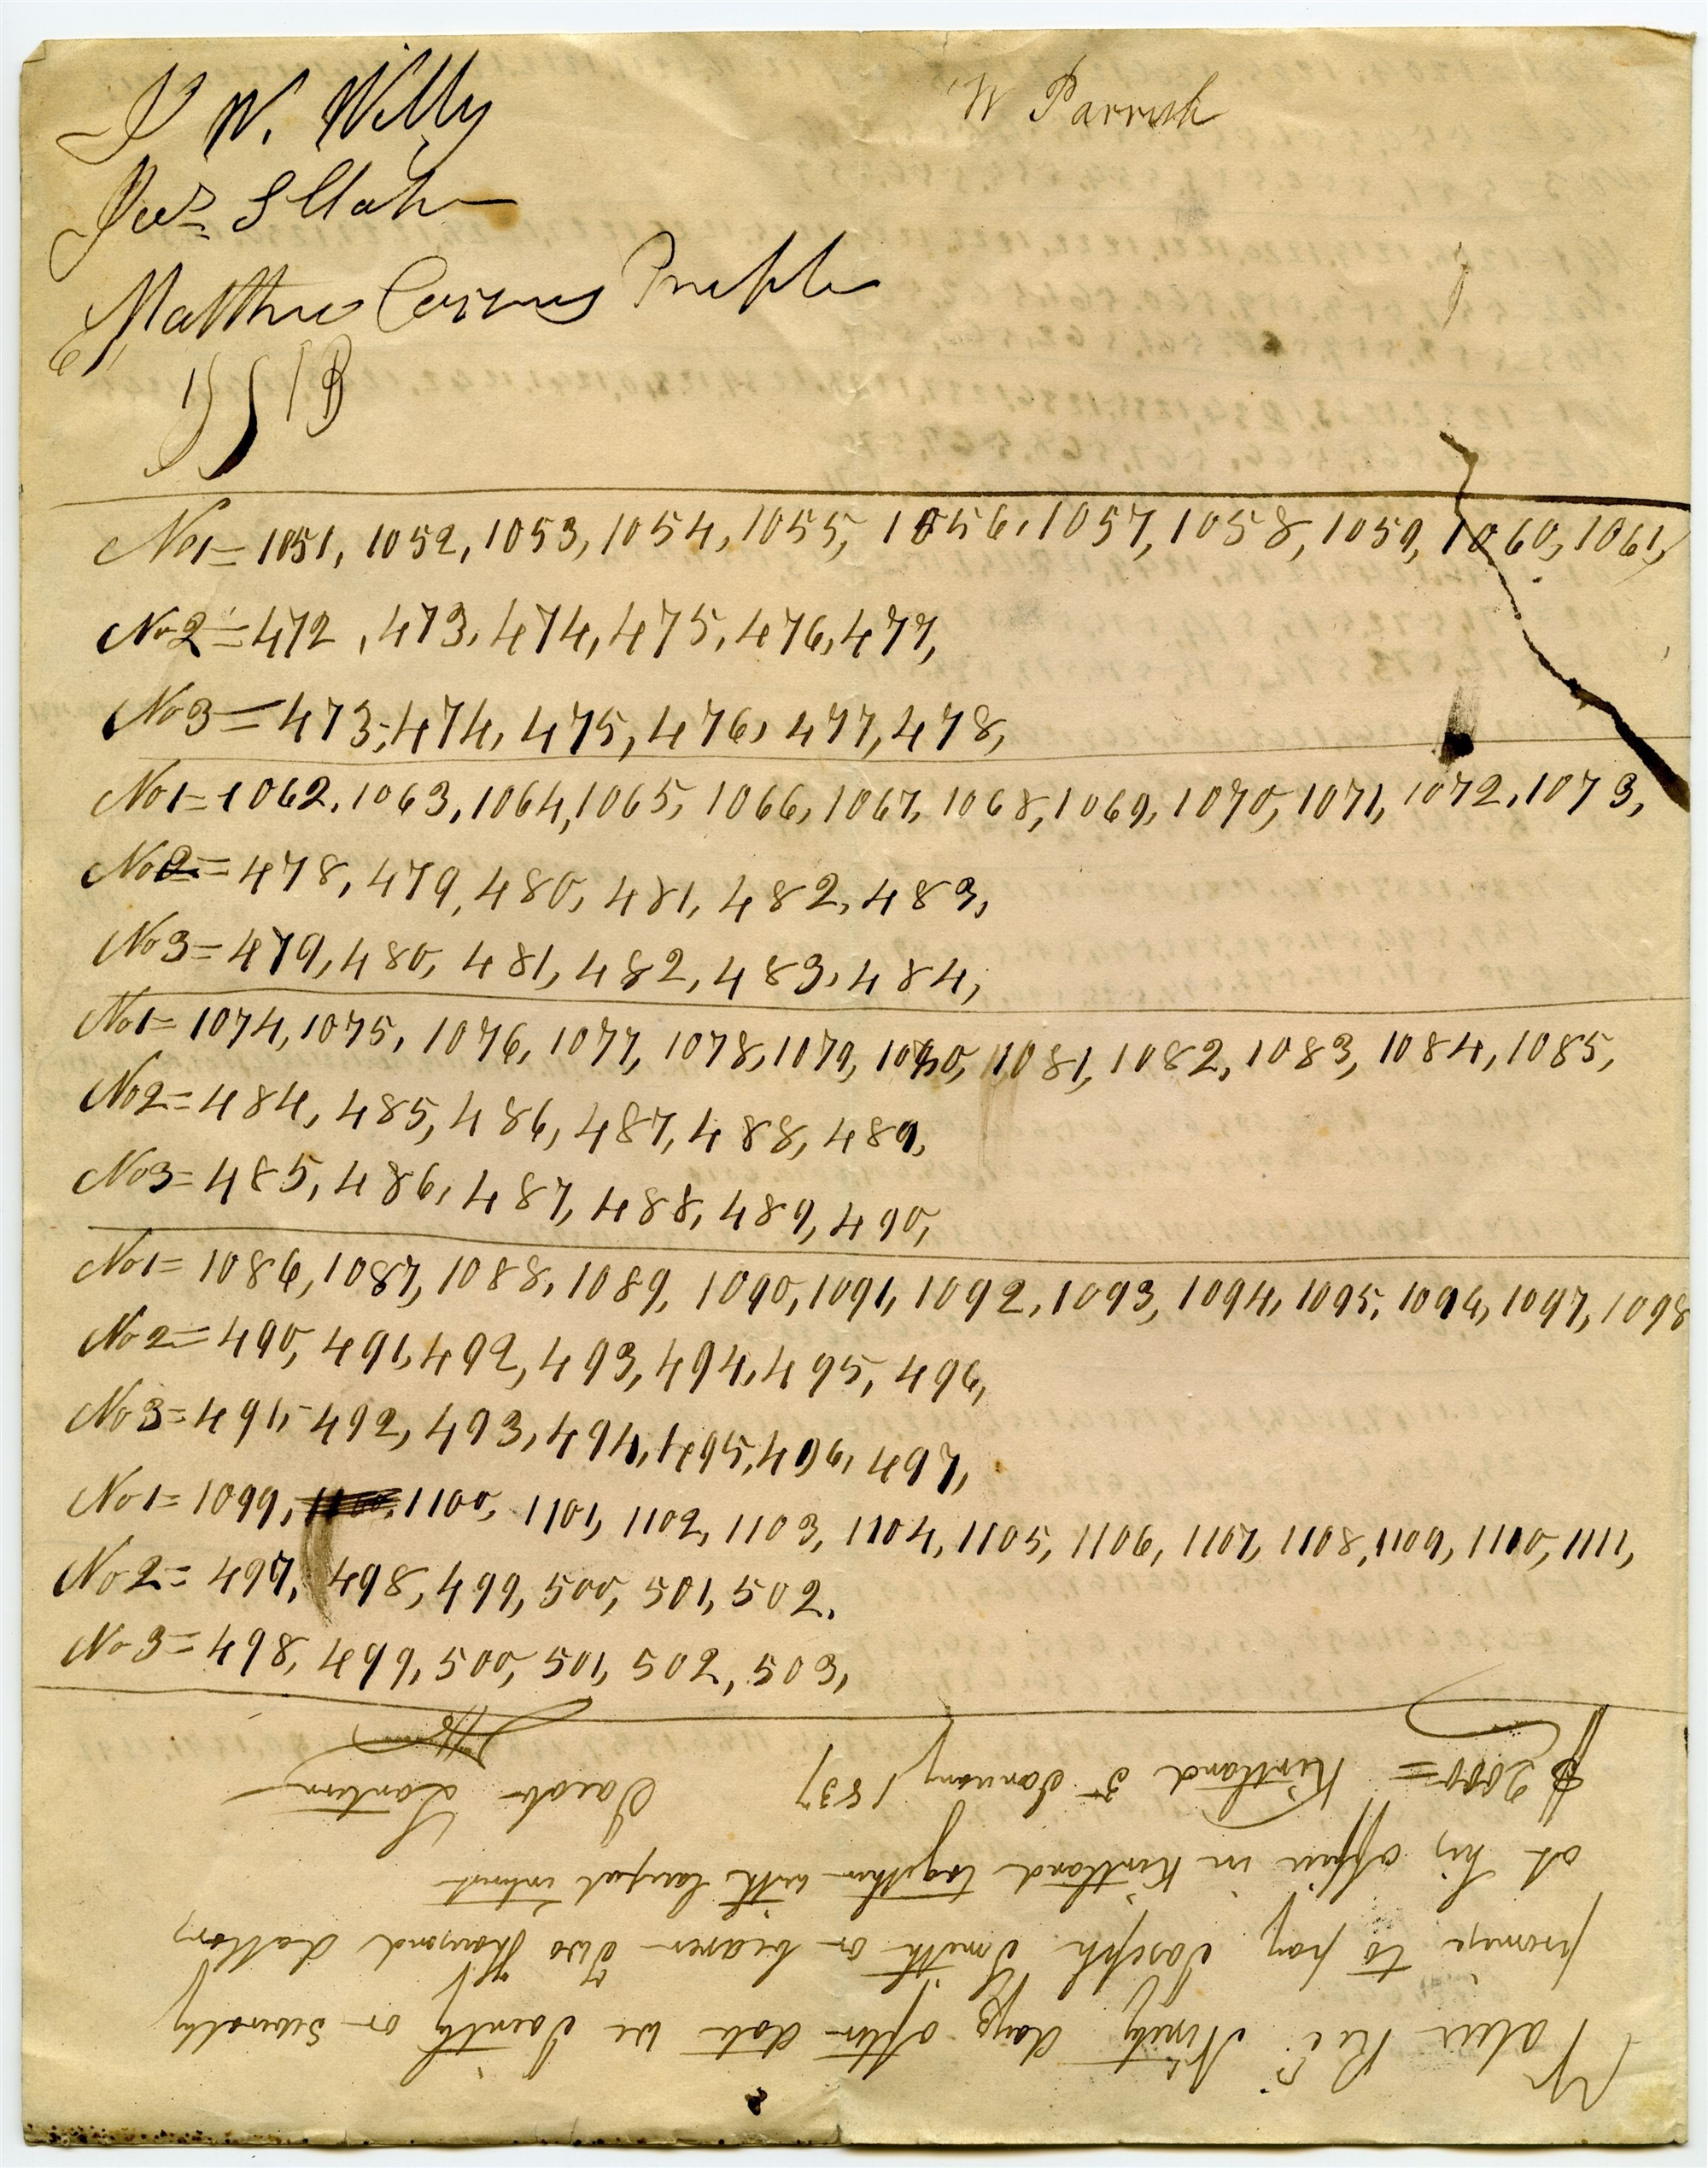 W. Willy
W Parrish
No1= 1051, 1052, 1053, 1054, 1055, 1056, 1057, 1058, 1059, 1060, 1061,
No2=472, 473, 474, 475, 476, 477,
No3=473, 474, 475, 476, 477, 478,
No1=1062, 1063, 1064, 1065, 1066, 1067, 1068, 1069, 1070, 1071, 1072, 1073,
No2=478, 479, 480, 481, 482, 483,
No3=479, 480, 481, 482, 483, 484,
No1=1074, 1075, 1076, 1077, 1078, 1079, 1080, 1081, 1082, 1083, 1084, 1085,
No2=484, 485, 486, 487, 488, 489,
No3=485, 486, 487, 488, 489, 490,
No1= 1086, 1087, 1088, 1089, 1090, 1091, 1092, 1093, 1094, 1095, 1096, 1097, 1098
No2=490, 491, 492, 493, 494, 495, 496,
No3=491, 492, 493, 494, 495, 496, 497,
No1=1099, 1100, 1101, 1102, 1103, 1104, 1105, 1106, 1107, 1108, 1109, 1110, 1111,
No2= 497, 498, 499, 500, 501, 502,
No3=498, 499, 500, 501, 502, 503,
Value Recd Ninety days after date we Jointly or Severally
promise to pay Joseph Smith or bearer Two Thousand dollars
at his office in Kirtland together with lawful intrest
$2000= Kirtland 5th January 1837
Jacob